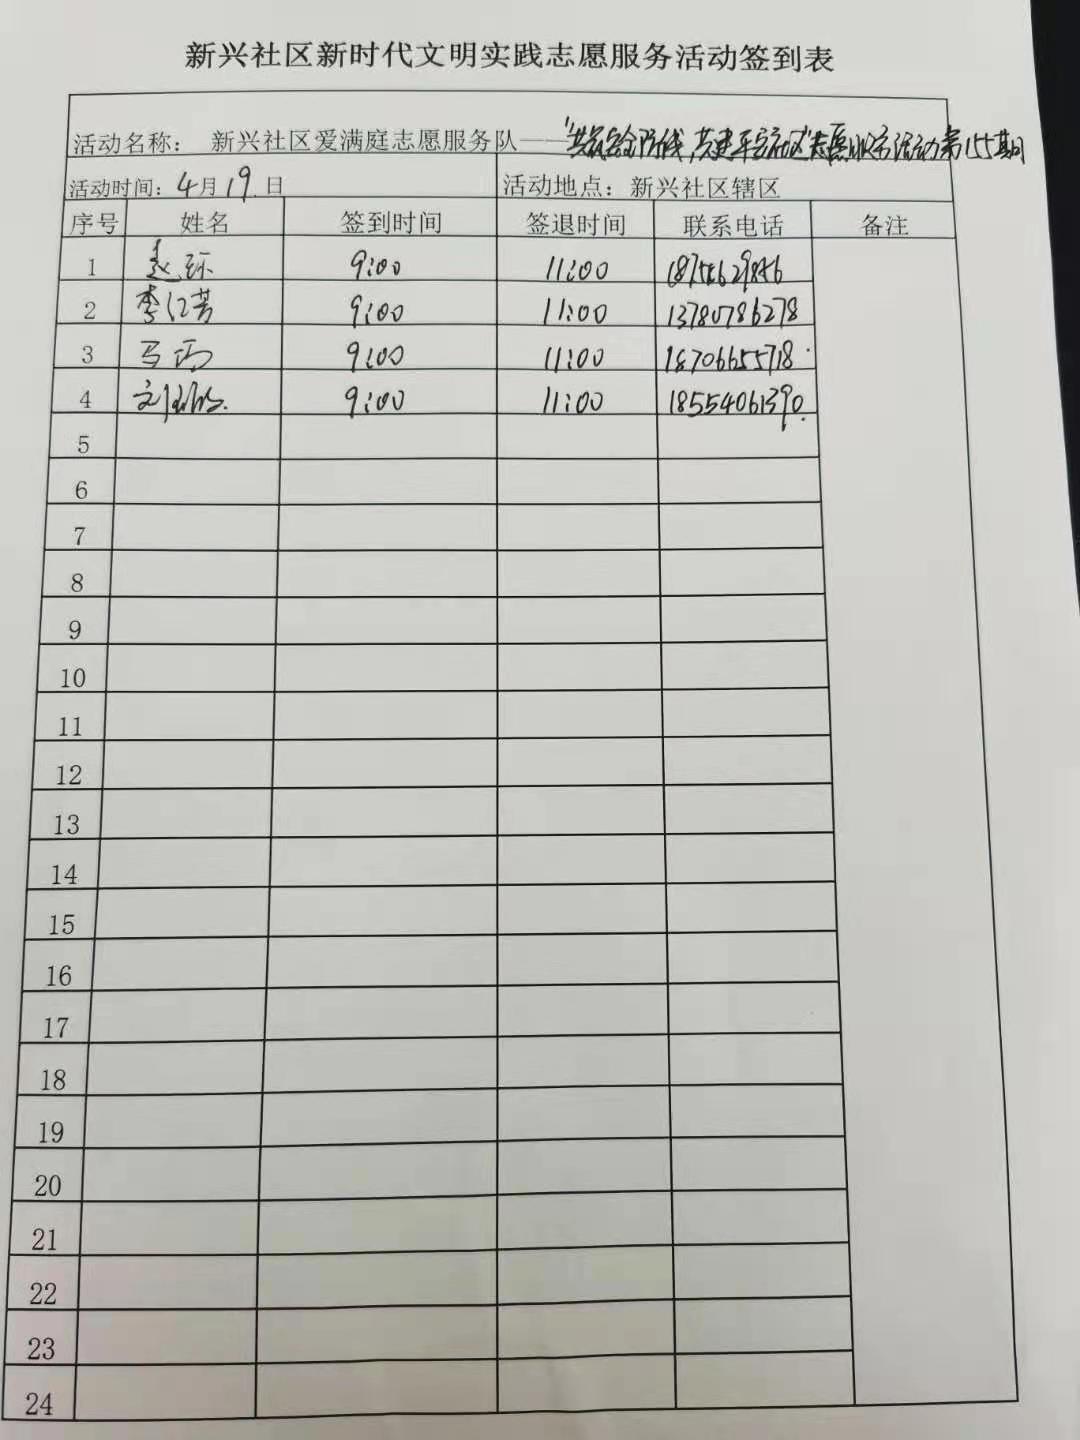 新兴社区新时代文明实践志愿服务活动签到表
活动名称： 新兴社区爱满庭志愿服务队——"共筑安全防线，共建平安社区"志愿服务活动第155期
活动时间：4月19日 活动地点：新兴社区辖区
序号 姓名 签到时间 签退时间 联系电话 备注
1 赵 9:00 11:00
2 李红芳 9:00 11:00 13780786278
3 马丙 9:00 11:00 18706655718
4 刘 9:00 11:00 18554061390
5
6
7
8
9
10
11
12
13
14
15
16
17
18
19
20
21
22
23
24